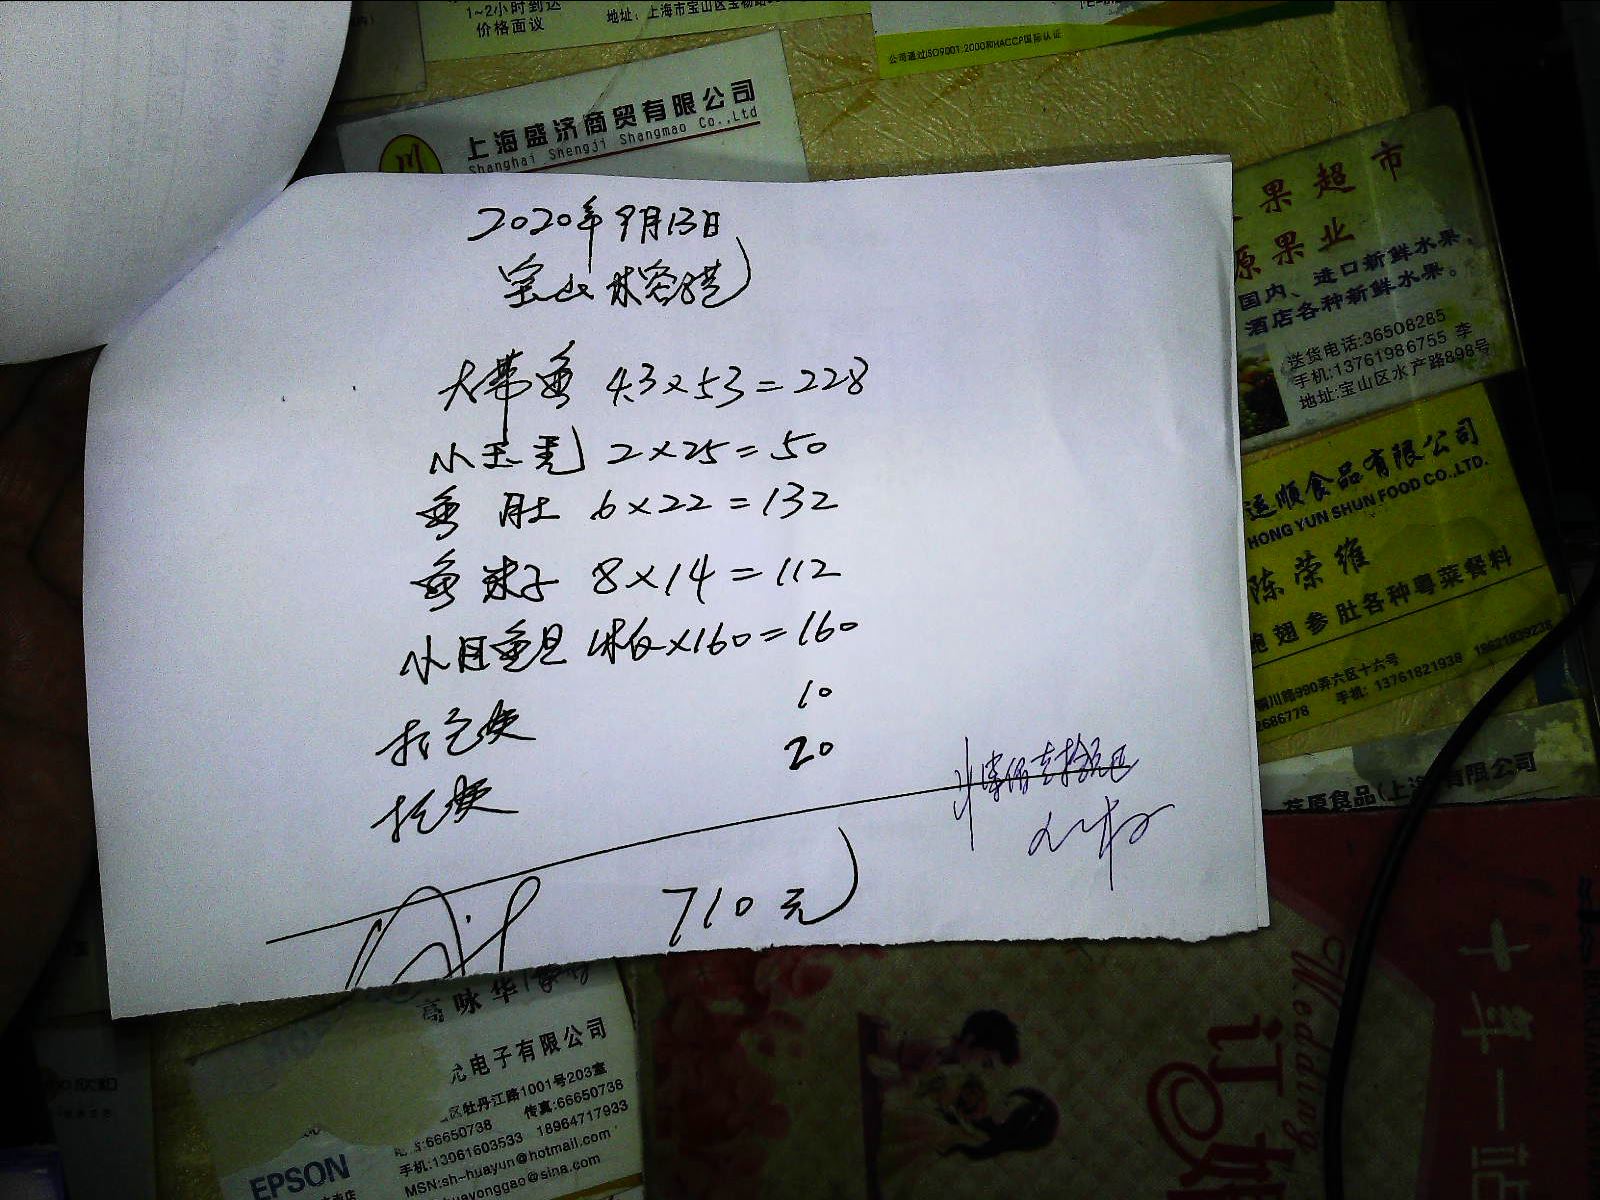 1~2小时到达
价格面议
地址：上海市宝山区宝杨路
公司通过ISO9001:2000和HACCP国际认证
上海盛济商贸有限公司
Shanghai Shengji Shangmao Co.,Ltd
2020年9月13日
宝山
大带鱼 4.3×53=228
小玉秃 2×25=50
鱼肚 6×22=132
鱼 子 8×14=112
小目鱼旦 1板×160=160
打包费 10
托费 20
710元
果超市
原果业
国内、进口新鲜水果，
酒店各种新鲜水果。
送货电话:36508285
手机:13761986755 李
地址:宝山区水产路898号
运顺食品有限公司
HONG YUN SHUN FOOD CO.,LTD.
陈荣维
鲍翅参肚各种粤菜餐料
铜川路990弄六区十六号
2686778 手机: 13761821938 18621839238
荐原食品(上海)有限公司
高咏华
电子有限公司
区牡丹江路1001号203室
传真:66650738
66650738
手机:13061603533 18964717933
MSN:sh-huayun@hotmail.com
huayonggao@sina.com
EPSON
Wedding
订婚
十年一